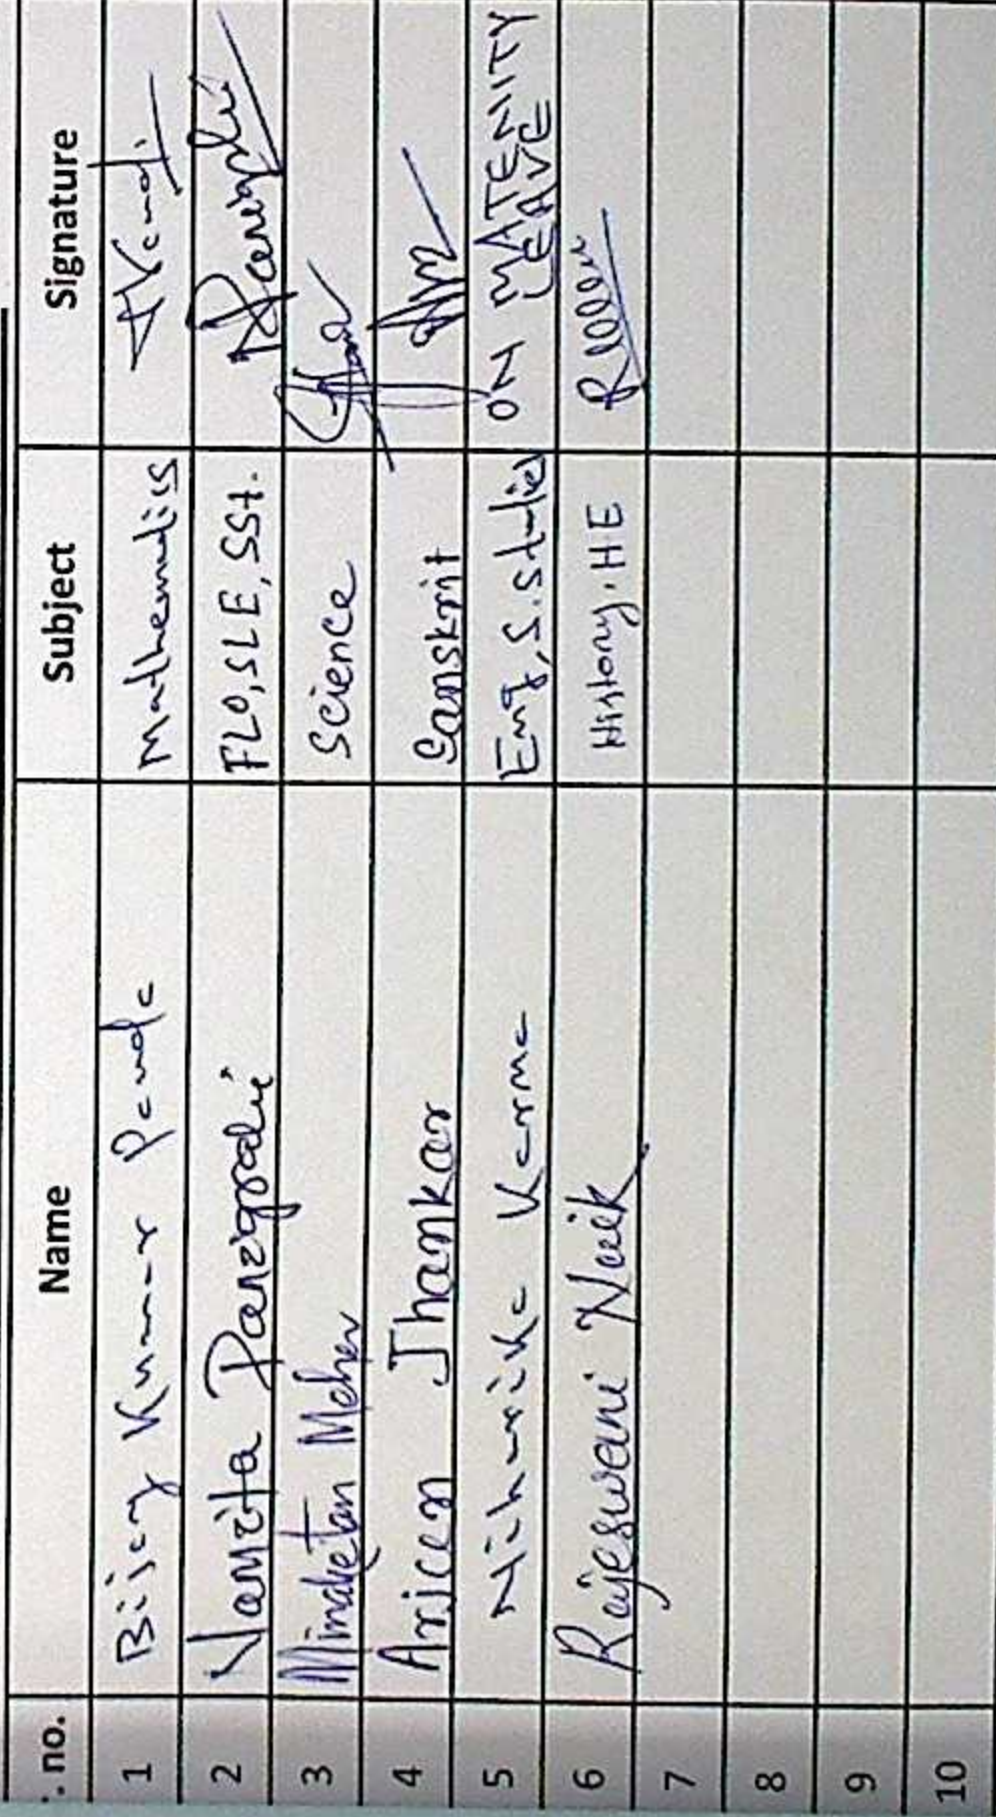 . no. Name Subject Signature
1 Bijay Kumar Panda Mathematics
2 Namita Panigrahi FLO, SLE, SSt.
3 Minaketan Meher Science
4 Arjun Jhankar Sanskrit
5 Niharika Karna Eng, S. Studies ON MATENITY LEAVE
6 Rajeswari Naik History, HE
7
8
9
10